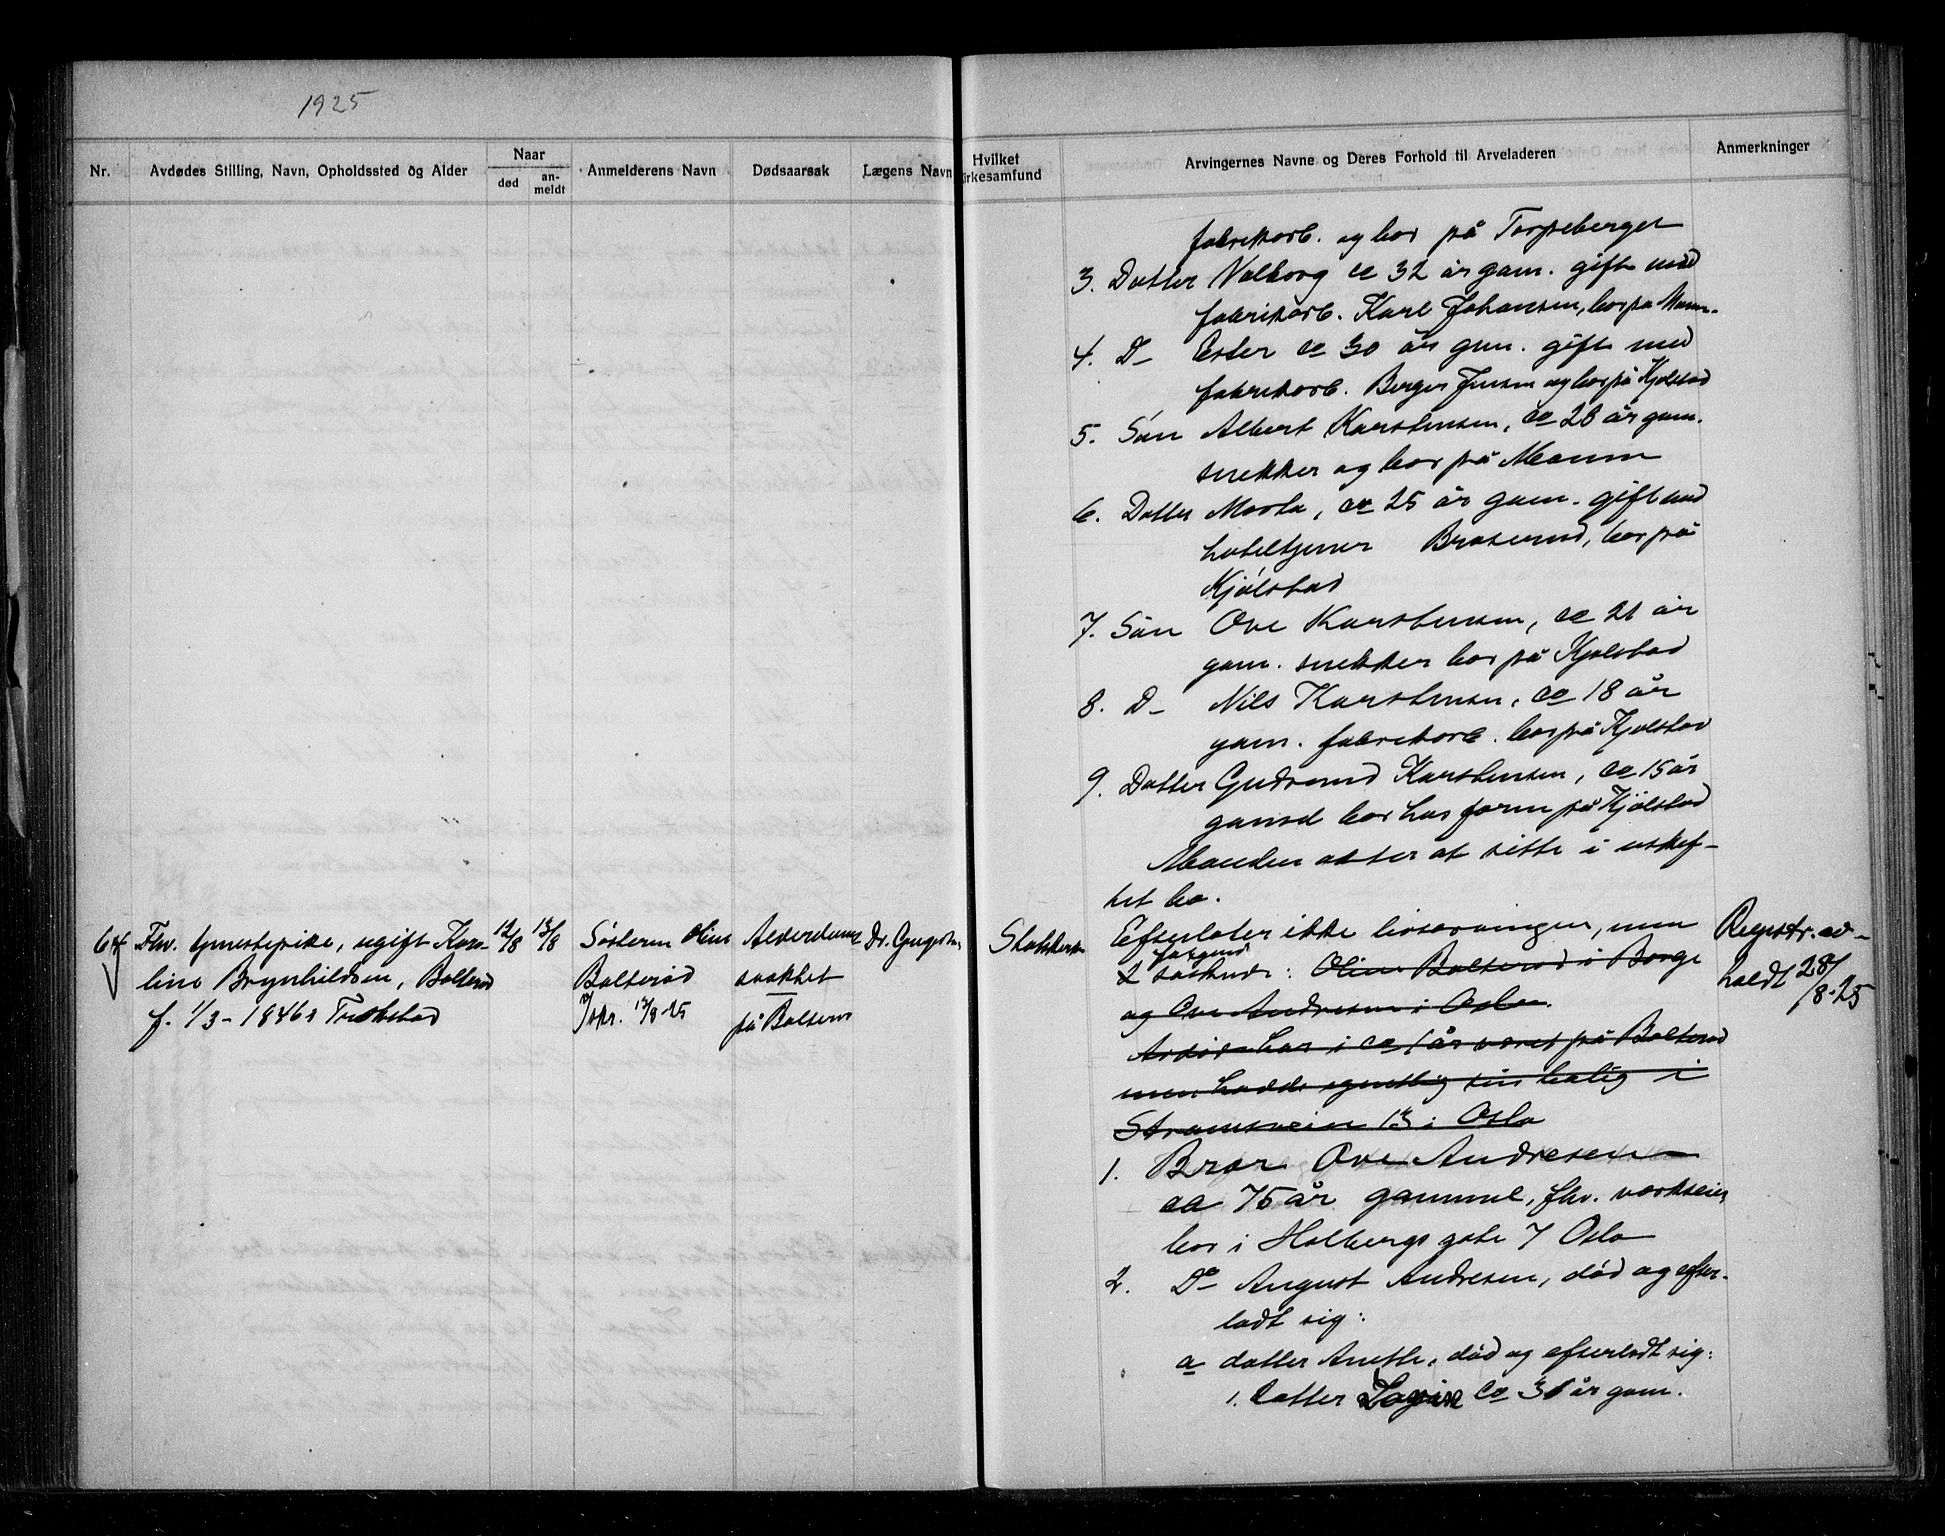 1925
Nr.
Avdødes Stilling, Navn, Opholdssted og Alder
Naar
død
an-
meldt
Anmelderens Navn
Dødsaarsak
Lægens Navn
Hvilket
irkesamfund
Arvingernes Navne og Deres Forhold til Arveladeren
Anmerkninger
fabrikarb. og bor på Torpeberget
3. Datter Valborg ca 32 år gam. gift med
fabrikarb. Karl Johansen, bor på Moum.
4. D– Ester ca 30 år gam. gift med
fabrikarb. Berger Jensen og bor på Kjølstad
5. Søn Albert Karstensen, ca 28 år gam.
snekker og bor på Moum
6. Datter Marta, ca 25 år gam. gift med
hoteltjener Braterud, bor på
Kjølstad
7. Søn Ove Karstensen, ca 21 år
gam. snekker bor på Kjølstad
8. D– Nils Karstensen, ca 18 år
gam. fabrikarb. bor på Kjølstad
9. Datter Gudrund Karstensen, ca 15 år
gamel bor hos faren på Kjølstad
Manden akter at sitte i uskif-
tet bo.
64
Fhv. tjenestepike, ugift Karo-
line Brynhildsen, Bolterød
f. 1/3 - 1846 i Trøkstad
12/8
13/8
Søsteren Oline
Bolterød
Ispr. 13/8-25
Alderdoms
svakhet
på Bolterø
Dr.
Statskirken
Efterlater ikke livsarvinger, men
følgend
2 søskende: Oline Bolterød i Borge
og Ove Andresen i Oslo.
Avdøde har i ca 1 år været på Bolterød
men hadde egentlig sin bolig i
Strømsveien 13 i Oslo
1. Bror Ove Andresen
ca 75 år gammel, fhv. værkseier
bor i Holbergs gate 7 Oslo
2. Do August Andresen, død og efter-
ladt sig:
a datter Anette, død og efterladt sig:
1. datter Lovise ca 31 år gam.
Registr. av-
holdt 28/8-25